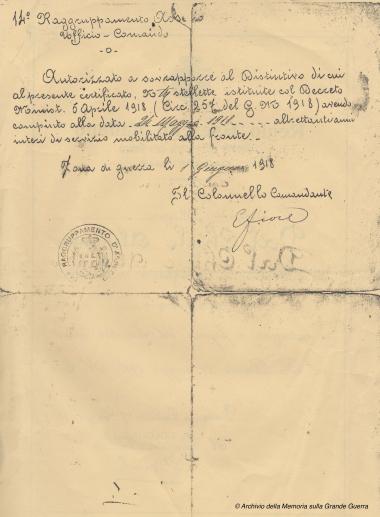 14º Raggruppamento
Ufficio - Comando
-o-
Autorizzato a sovrapporre al Distintivo di cui
al presente certificato, Nº stellette istituite col Decreto
Minist. 5 Aprile 1918 (Circ 257 del G.M 1918) avendo
compiuto alla data 24 Maggio 1918 altrettanti anni
interi di servizio mobilitato alla fronte.-
Zona di guerra li 1 Giugno 1918
Il Colonnello Comandante
E fiore
RAGGRUPPAMENTO D'ASS
© Archivio della Memoria sulla Grande Guerra